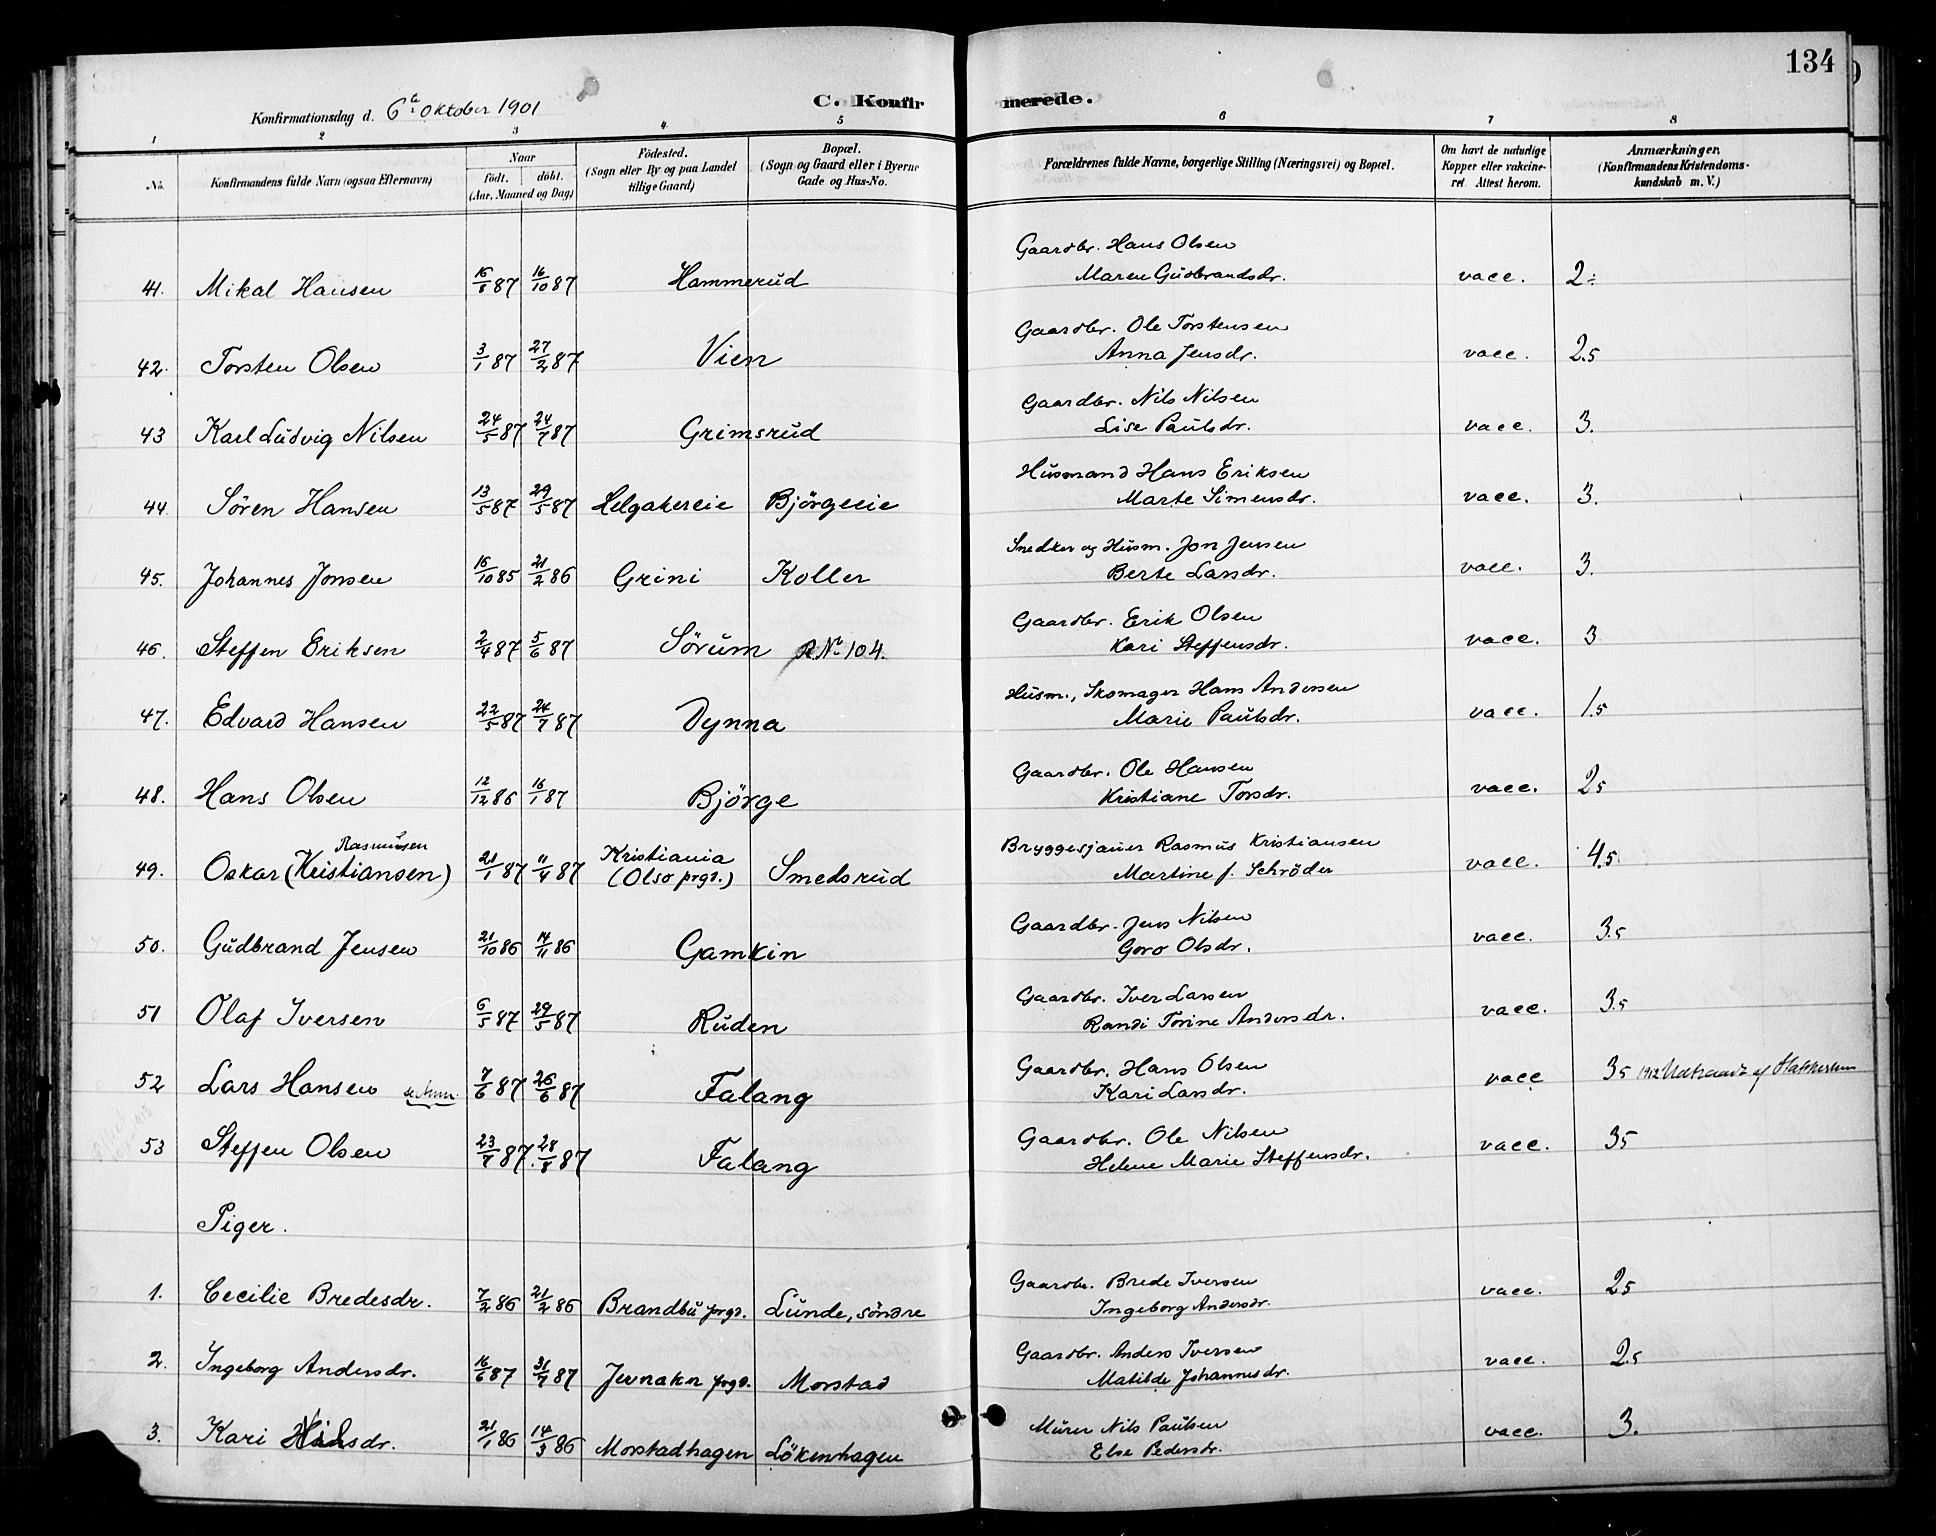 134
C. Konfirmerede.
Konfirmationsdag d. 6te Oktober 1901
1 2 3 4 5 6 7 8
No. Konfirmandens fulde Navn (ogsaa Efternavn) Naar födt. döbt. (Aar, Maaned og Dag) Födested. (Sogn eller By og paa Landet tillige Gaard) Bopæl. (Sogn og Gaard eller i Byerne Gade og Hus-No. Forældrenes fulde Navne, borgerlige Stilling (Næringsvei) og Bopæl. Om havt de naturlige Kopper eller vakcineret. Attest herom. Anmærkninger. (Konfirmandens Kristendomskundskab m. V.)
41. Mikal Hansen 15/8 87 16/10 87 Hammerud Gaardbr. Hans Olsen Maren Gudbrandsdr. vacc. 2÷
42. Torsten Olsen 3/1 87 27/2 87 Vien Gaardbr. Ole Torstensen Anna Jensdr. vacc. 2.5
43 Karl Ludvig Nilsen 24/5 87 24/7 87 Grimsrud Gaardbr. Nils Nilsen Lise Paulsdr. vacc. 3.
44. Sören Hansen 13/5 87 29/5 87 Helgakereie Björgeeie Husmand Hans Eriksen Marte Simensdr. vacc. 3.
45. Johannes Jonsen 16/10 85 21/2 86 Grini Koller Snedker og Husm. Jon Jensen Berte Larsdr. vacc. 3.
46. Steffen Eriksen 2/4 87 5/6 87 Sörum No 104. Gaardbr. Erik Olsen Kari Steffensdr. vacc. 3
47. Edvard Hansen 22/5 87 24/7 87 Dynna Husm., Skomager Hans Andersen Marie Paulsdr. vacc. 1.5
48. Hans Olsen 12/12 86 16/1 87 Björge Gaardbr. Ole Hansen Kristiane Torsdr. vacc. 2 5
49. Oskar (Kristiansen) Rasmusen 21/1 87 11/4 87 Kristiania (Olso prgd.) Smedsrud Bryggesjauer Rasmus Kristiansen Martine f. Schröder vacc. 4.5
50. Gudbrand Jensen 21/10 86 14/11 86 Gamkin Gaardbr. Jens Nilsen Goro Olsdr. vacc. 3.5
51 Olaf Iversen 6/5 87 29/5 87 Ruden Gaardbr. Iver Larsen Randi Torine Andersdr. vacc. 3.5
52 Lars Hansen 7/6 87 26/6 87 Falang Gaardbr. Hans Olsen Kari Larsdr. vacc 3 5 1912 Udtraadt af Statskirken
53 Steffen Olsen 23/7 87. 28/8 87 Falang Gaardbr. Ole Nilsen Helene Marie Steffensdr. vacc. 3 5
Piger.
1. Cecilie Bredesdr. 7/2 86 21/2 86 Brandbu prgd. Lunde, söndre Gaardbr. Brede Iversen Ingeborg Andersdr. vacc. 2 5
2. Ingeborg Andersdr. 16/6 87 31/7 87 Jevnaker prgd. Morstad Gaardbr. Anders Iversen Matilde Johannesdr. vacc. 2.5
3. Kari Nilsdr. 21/1 86 14/3 86 Morstadhagen Lökenhagen Murer Nils Paulsen Else Pedersdr. vacc. 3.